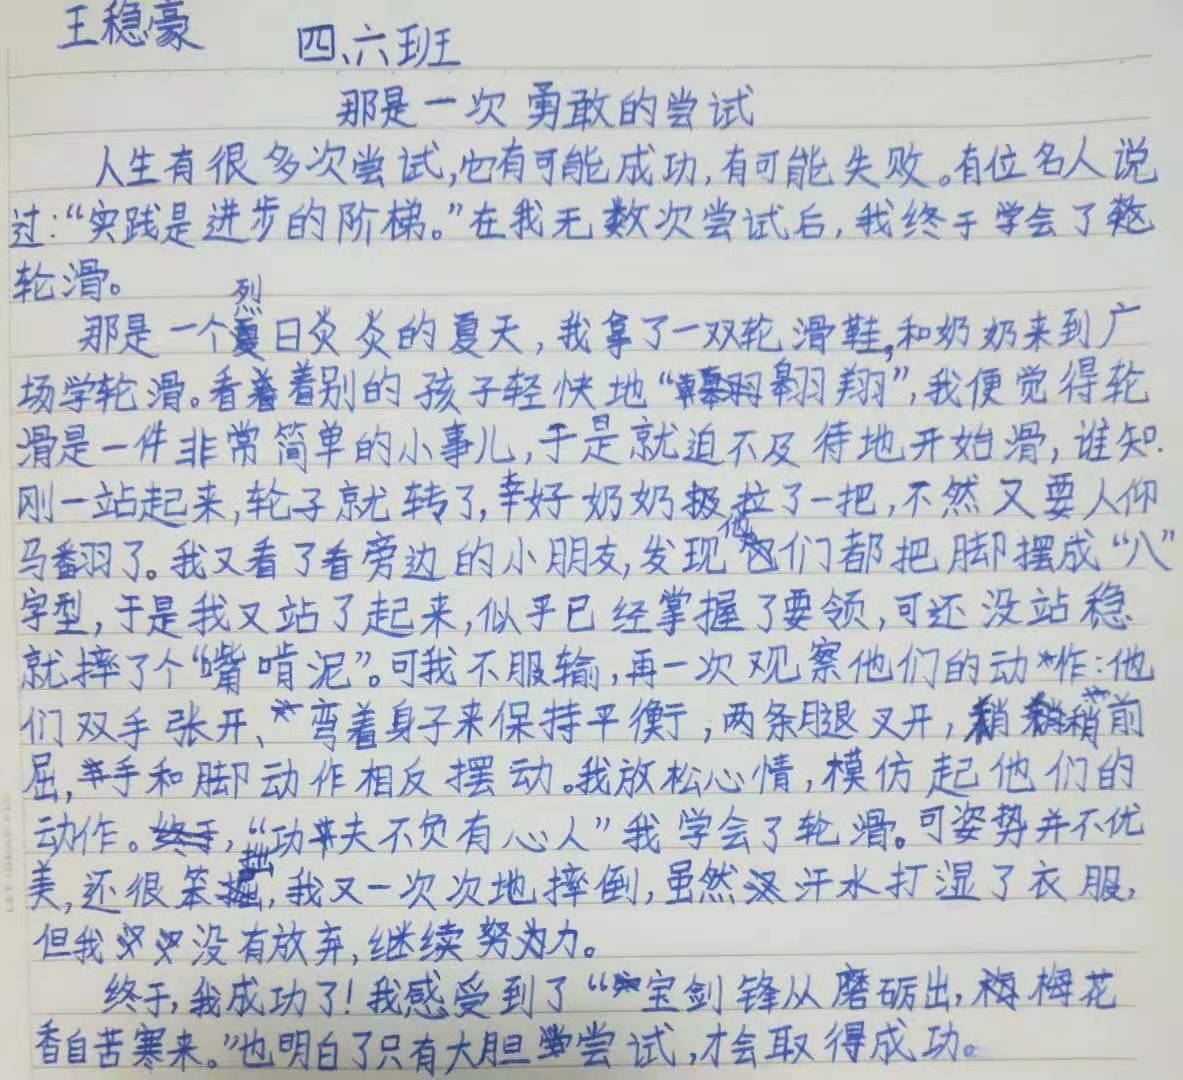 王稳豪
四、六班
那是一次勇敢的尝试
人生有很多次尝试,也有可能成功,有可能失败。有位名人说
过:“实践是进步的阶梯。”在我无数次尝试后,我终于学会了
轮滑。
烈
那是一个日炎炎的夏天,我拿了一双轮滑鞋,和奶奶来到广
场学轮滑。看着别的孩子轻快地“翱翔”,我便觉得轮
滑是一件非常简单的小事儿,于是就迫不及待地开始滑,谁知.
刚一站起来,轮子就转了,幸好奶奶拉了一把,不然又要人仰
马翻了。我又看了看旁边的小朋友,发现他们都把脚摆成“八”
字型,于是我又站了起来,似乎已经掌握了要领,可还没站稳
就摔了个“嘴啃泥”。可我不服输,再一次观察他们的动作:他
们双手张开、弯着身子来保持平衡,两条腿叉开,稍前
屈,手和脚动作相反摆动。我放松心情,模仿起他们的
动作。“功夫不负有心人”我学会了轮滑。可姿势并不优
美,还很笨拙,我又一次次地摔倒,虽然汗水打湿了衣服,
但我没有放弃,继续努力。
终于,我成功了!我感受到了“宝剑锋从磨砺出,梅花
香自苦寒来。”也明白了只有大胆尝试,才会取得成功。